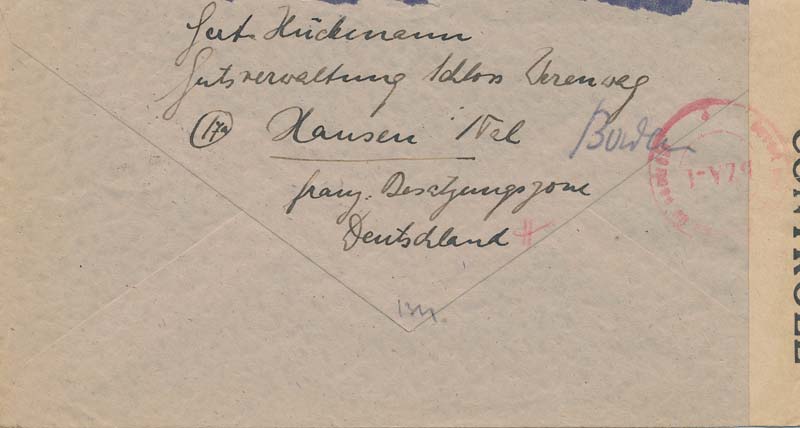 Gert Hückemann
Gutsverwaltung Schloss Werenwag
(17a) Hausen i/Tal
franz. Besatzungszone
Deutschland
CONTROLE